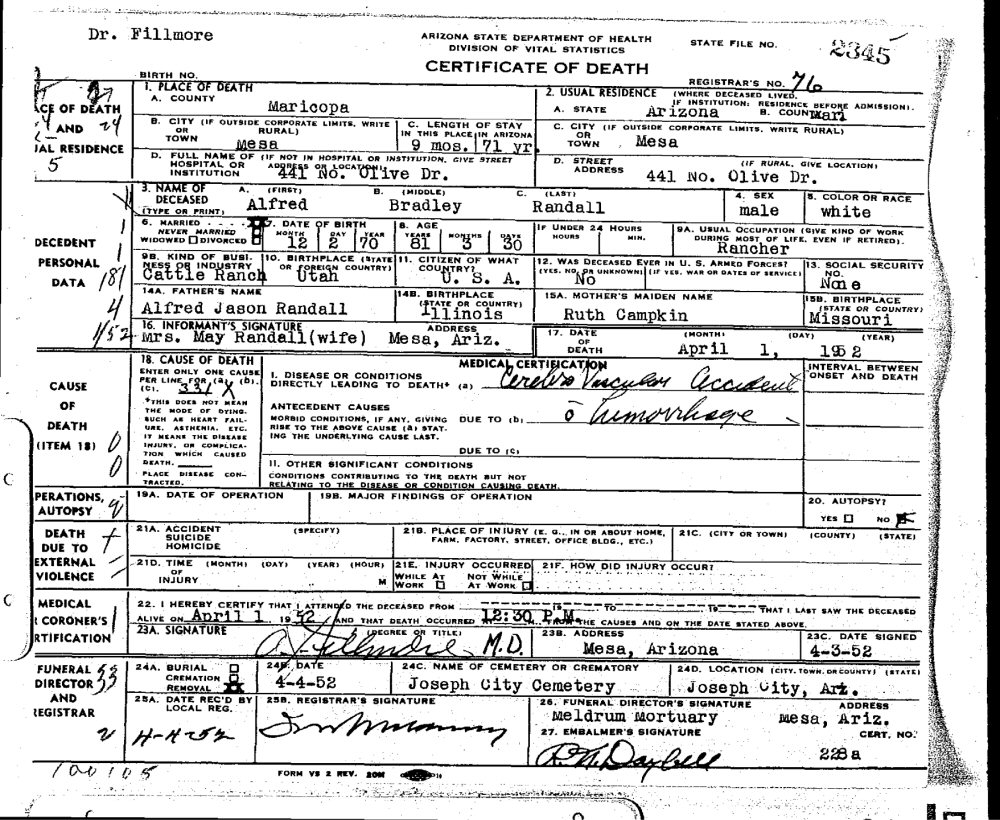 Dr. Fillmore
ARIZONA STATE DEPARTMENT OF HEALTH
DIVISION OF VITAL STATISTICS
STATE FILE NO. 2345
CERTIFICATE OF DEATH
BIRTH NO.
REGISTRAR'S NO. 76
1. PLACE OF DEATH
A. COUNTY
Maricopa
2. USUAL RESIDENCE (WHERE DECEASED LIVED.
IF INSTITUTION: RESIDENCE BEFORE ADMISSION).
A. STATE Arizona B. COUNTY Mari
B. CITY (IF OUTSIDE CORPORATE LIMITS, WRITE
OR RURAL)
TOWN Mesa
C. LENGTH OF STAY
IN THIS PLACE IN ARIZONA
9 mos. 71 yr.
C. CITY (IF OUTSIDE CORPORATE LIMITS, WRITE RURAL)
OR
TOWN Mesa
D. FULL NAME OF (IF NOT IN HOSPITAL OR INSTITUTION, GIVE STREET
HOSPITAL OR ADDRESS OR LOCATION)
INSTITUTION 441 No. Olive Dr.
D. STREET (IF RURAL, GIVE LOCATION)
ADDRESS 441 No. Olive Dr.
CE OF DEATH
AND 24
IAL RESIDENCE
5
3. NAME OF A. (FIRST) B. (MIDDLE) C. (LAST)
DECEASED Alfred Bradley Randall
(TYPE OR PRINT)
4. SEX
male
5. COLOR OR RACE
white
6. MARRIED
NEVER MARRIED
WIDOWED DIVORCED
7. DATE OF BIRTH
MONTH DAY YEAR
12 2 70
8. AGE
YEARS MONTHS DAYS
81 3 30
IF UNDER 24 HOURS
HOURS MIN.
9A. USUAL OCCUPATION (GIVE KIND OF WORK
DURING MOST OF LIFE, EVEN IF RETIRED).
Rancher
DECEDENT
PERSONAL
DATA
9B. KIND OF BUSI-
NESS OR INDUSTRY
Cattle Ranch
10. BIRTHPLACE (STATE
OR FOREIGN COUNTRY)
Utah
11. CITIZEN OF WHAT
COUNTRY?
U. S. A.
12. WAS DECEASED EVER IN U. S. ARMED FORCES?
(YES, NO, OR UNKNOWN) (IF YES, WAR OR DATES OF SERVICE)
No
13. SOCIAL SECURITY
NO.
None
14A. FATHER'S NAME
Alfred Jason Randall
14B. BIRTHPLACE
(STATE OR COUNTRY)
Illinois
15A. MOTHER'S MAIDEN NAME
Ruth Campkin
15B. BIRTHPLACE
(STATE OR COUNTRY)
Missouri
16. INFORMANT'S SIGNATURE ADDRESS
Mrs. May Randall(wife) Mesa, Ariz.
17. DATE (MONTH) (DAY) (YEAR)
OF
DEATH April 1, 1952
CAUSE
OF
DEATH
(ITEM 18)
18. CAUSE OF DEATH
ENTER ONLY ONE CAUSE
PER LINE FOR (a), (b),
(c). 331X
*THIS DOES NOT MEAN
THE MODE OF DYING,
SUCH AS HEART FAIL-
URE, ASTHENIA, ETC.
IT MEANS THE DISEASE
INJURY, OR COMPLICA-
TION WHICH CAUSED
DEATH.
PLACE DISEASE CON-
TRACTED.
MEDICAL CERTIFICATION
INTERVAL BETWEEN
ONSET AND DEATH
I. DISEASE OR CONDITIONS
DIRECTLY LEADING TO DEATH* (a) Cerebro Vascular Accident
ANTECEDENT CAUSES
MORBID CONDITIONS, IF ANY, GIVING
RISE TO THE ABOVE CAUSE (a) STAT-
ING THE UNDERLYING CAUSE LAST.
DUE TO (b) hemorrhage
DUE TO (c)
II. OTHER SIGNIFICANT CONDITIONS
CONDITIONS CONTRIBUTING TO THE DEATH BUT NOT
RELATING TO THE DISEASE OR CONDITION CAUSING DEATH.
PERATIONS,
AUTOPSY
19A. DATE OF OPERATION
19B. MAJOR FINDINGS OF OPERATION
20. AUTOPSY?
YES NO
DEATH
DUE TO
EXTERNAL
VIOLENCE
21A. ACCIDENT (SPECIFY)
SUICIDE
HOMICIDE
21B. PLACE OF INJURY (E. G., IN OR ABOUT HOME,
FARM, FACTORY, STREET, OFFICE BLDG., ETC.)
21C. (CITY OR TOWN) (COUNTY) (STATE)
21D. TIME (MONTH) (DAY) (YEAR) (HOUR)
OF
INJURY M
21E. INJURY OCCURRED
WHILE AT NOT WHILE
WORK AT WORK
21F. HOW DID INJURY OCCUR?
MEDICAL
CORONER'S
RTIFICATION
22. I HEREBY CERTIFY THAT I ATTENDED THE DECEASED FROM 19 TO 19 THAT I LAST SAW THE DECEASED
ALIVE ON April 1 1952 AND THAT DEATH OCCURRED 12:30 P.M. FROM THE CAUSES AND ON THE DATE STATED ABOVE.
23A. SIGNATURE (DEGREE OR TITLE)
Fillmore M.D.
23B. ADDRESS
Mesa, Arizona
23C. DATE SIGNED
4-3-52
FUNERAL
DIRECTOR 33
AND
REGISTRAR
24A. BURIAL
CREMATION
REMOVAL
24B. DATE
4-4-52
24C. NAME OF CEMETERY OR CREMATORY
Joseph City Cemetery
24D. LOCATION (CITY, TOWN, OR COUNTY) (STATE)
Joseph City, Ariz.
25A. DATE REC'D BY
LOCAL REG.
4-4-52
25B. REGISTRAR'S SIGNATURE
26. FUNERAL DIRECTOR'S SIGNATURE ADDRESS
Meldrum Mortuary Mesa, Ariz.
27. EMBALMER'S SIGNATURE CERT. NO.
228a
100105
FORM VS 2 REV. 20M